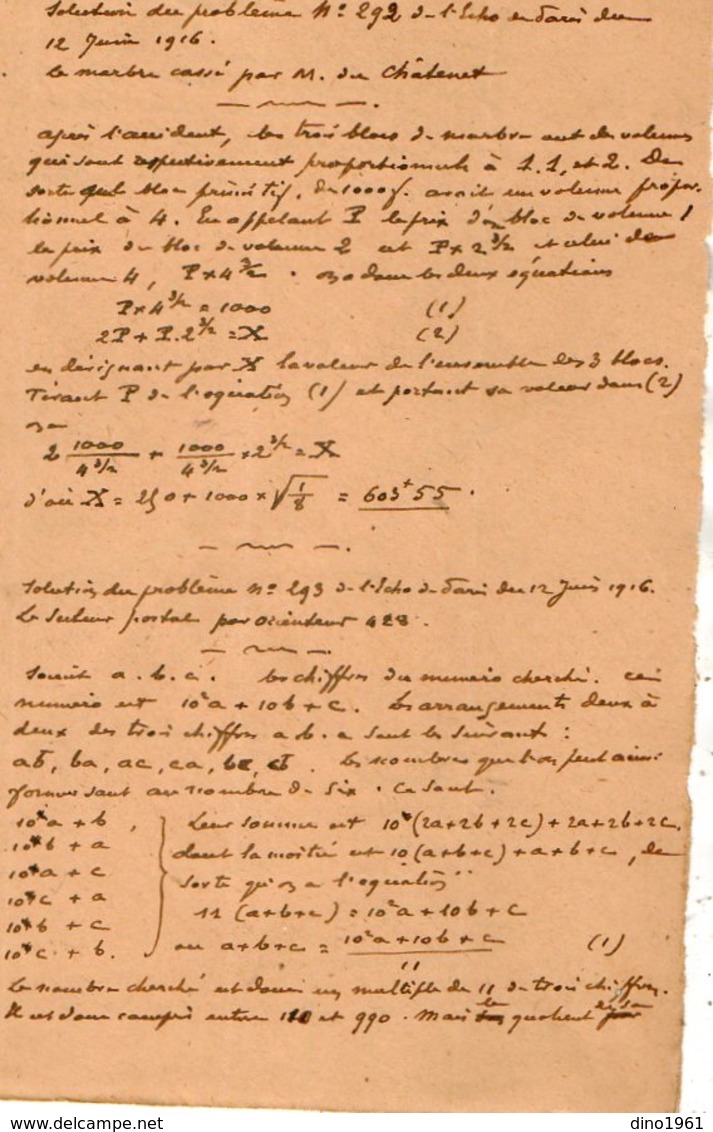 Solution du problème Nº 292 de l'Echo de Paris du
12 Juin 1916.
Le marbre cassé par M. du Châtenet
après l'accident, les trois blocs de marbre ont des volumes
qui sont respectivement proportionnels à 1.1, et 2. De
sorte que le bloc primitif, de 1000 f. avait un volume propor-
tionnel à 4. En appelant P le prix d'un bloc de volume 1
le prix du bloc de volume 2 est P×2^3/2 et celui de
volume 4, P×4^3/2. on a donc les deux équations
P×4^3/2 = 1000 (1)
2P + P.2^3/2 = X (2)
en désignant par X la valeur de l'ensemble des 3 blocs.
Tirant P de l'équation (1) et portant sa valeur dans (2)
on a
2 1000/4^3/2 + 1000/4^3/2 × 2^3/2 = X
d'où X = 250 + 1000 × √1/8 = 603 f 55.
Solution du problème nº 293 de l'Echo de Paris du 12 Juin 1916.
Le Secteur postal par Orienteur 428.
Soient a. b. c. les chiffres du numéro cherché. ce
numéro est 10²a + 10b + c. Les arrangements deux à
deux des trois chiffres a. b. c sont les suivants :
ab, ba, ac, ca, bc, cb. Les nombres que l'on peut ainsi
former sont au nombre de six. Ce sont.
10a + b,
10b + a
10a + c
10c + a
10b + c
10c + b.
Leur somme est 10(2a+2b+2c)+2a+2b+2c.
dont la moitié est 10(a+b+c)+a+b+c, de
sorte qu'on a l'équation
11(a+b+c) = 10²a+10b+c
ou a+b+c = 10²a+10b+c/11 (1)
Le nombre cherché est donc un multiple de 11 de trois chiffres.
Il est donc compris entre 110 et 990. Mais le quotient de sa
dino1961